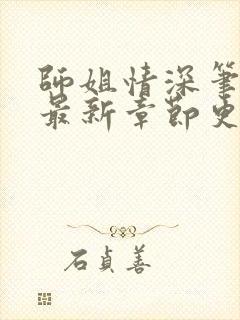 師姐情深筆
最新章節史
石貞善